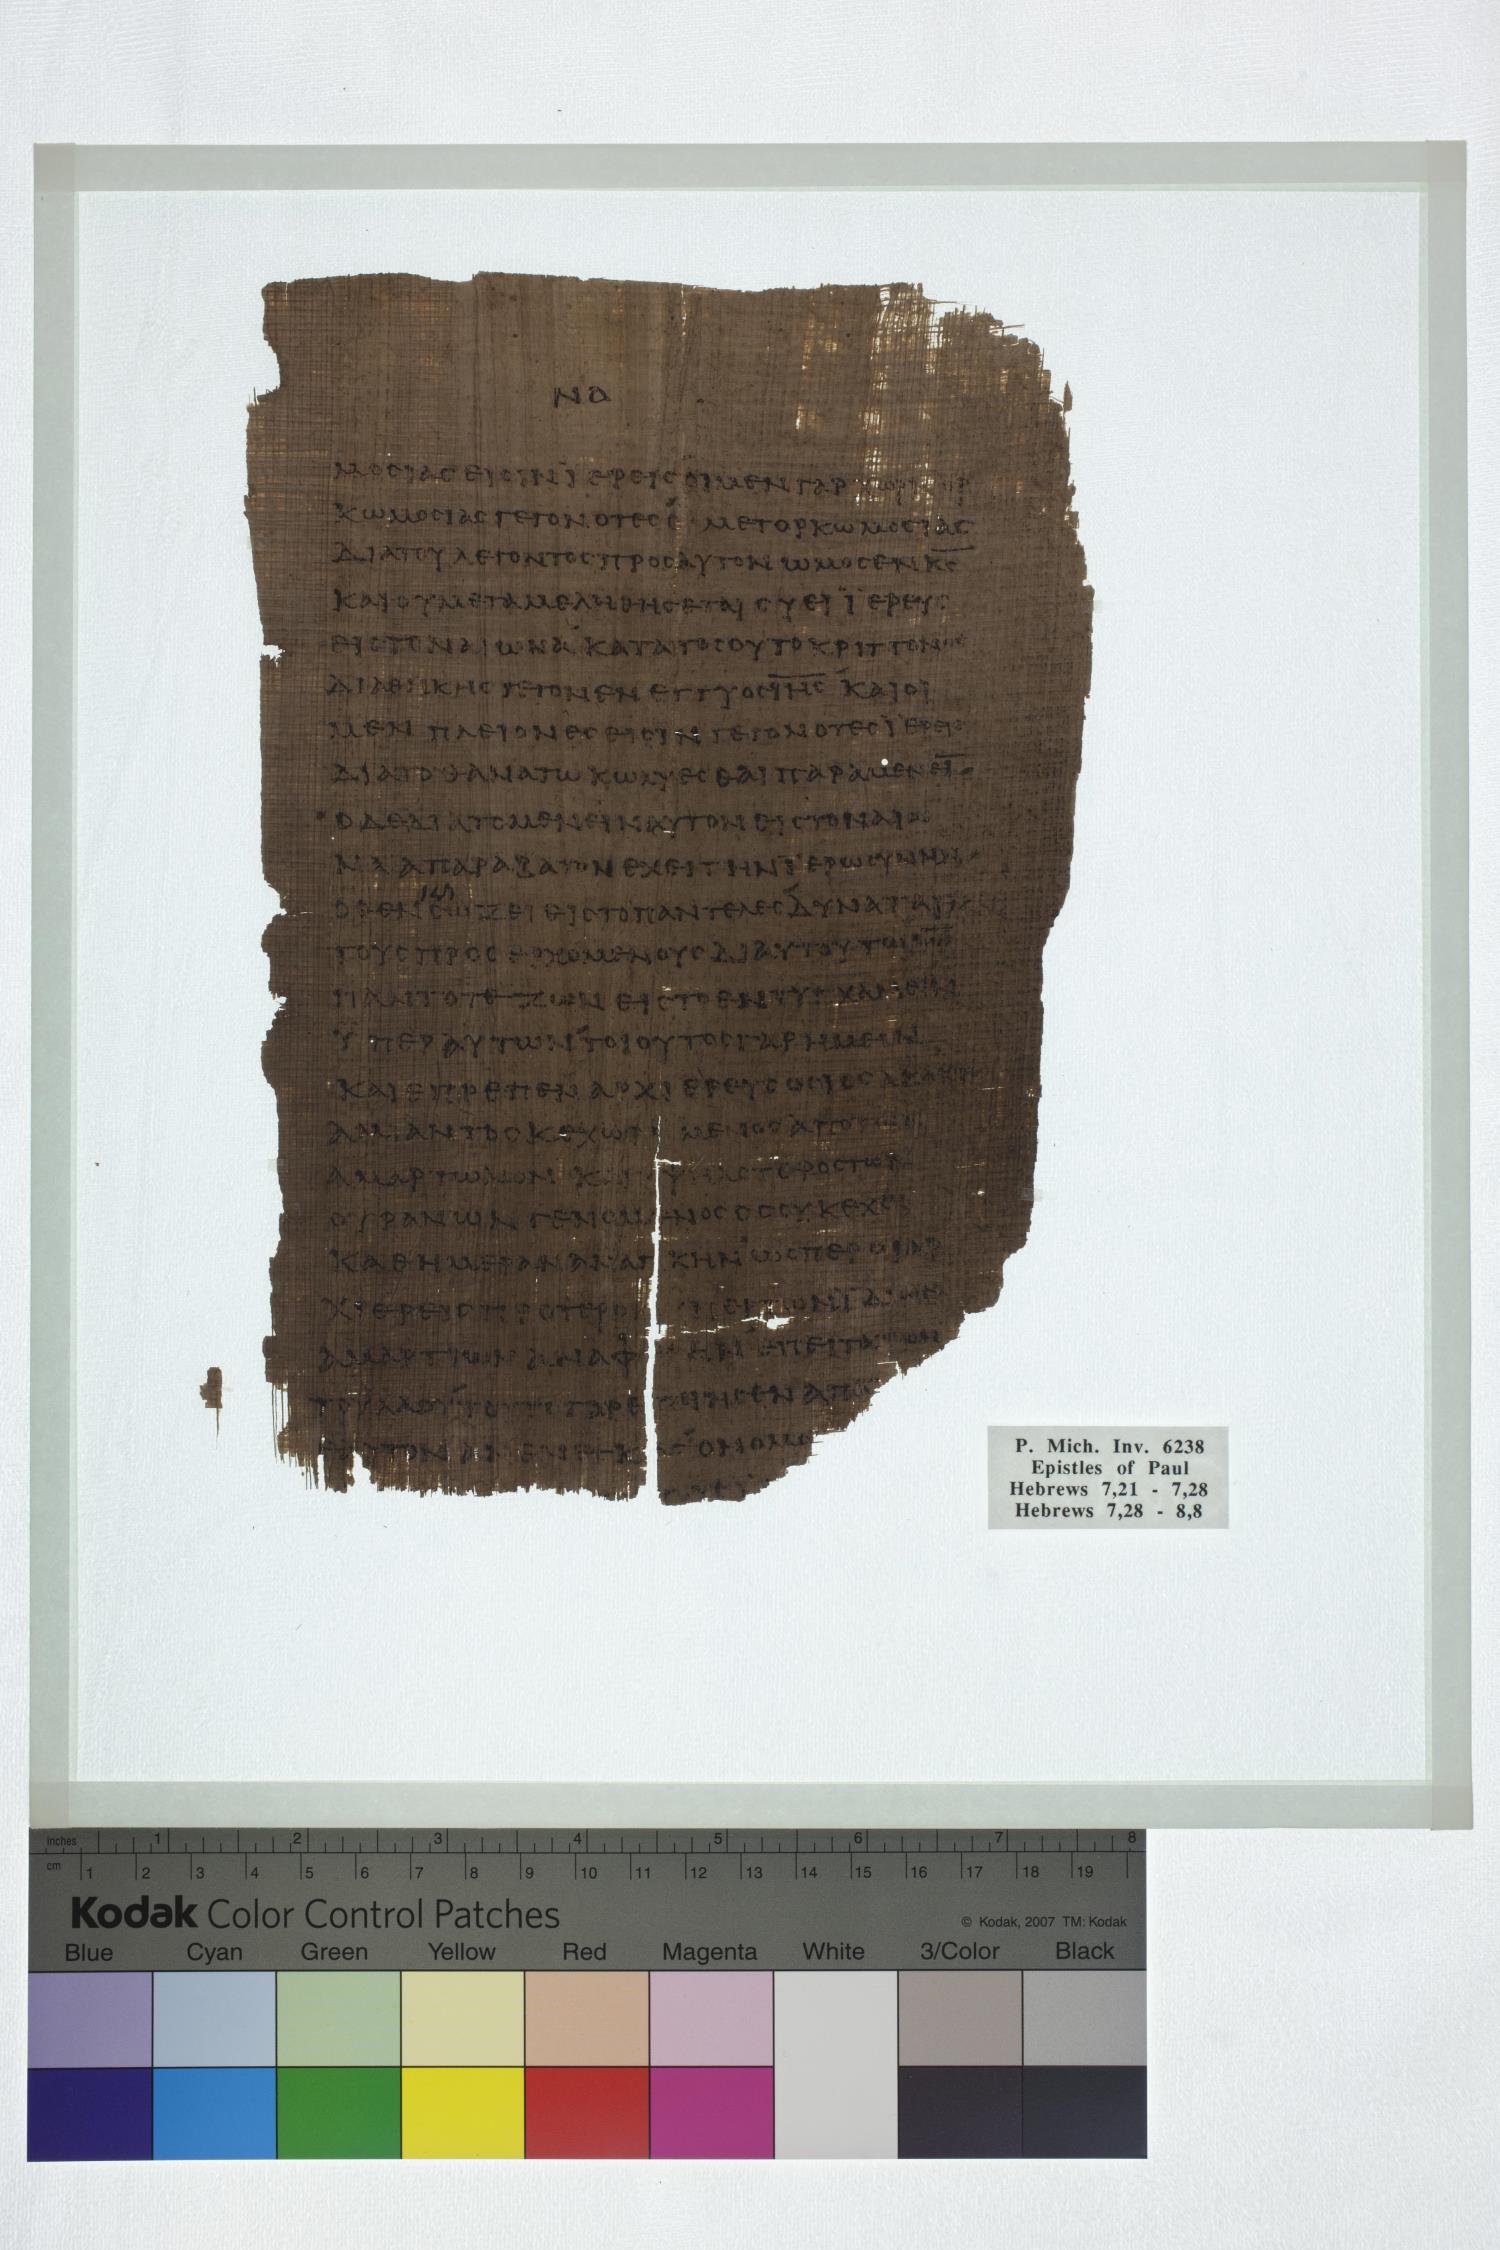 ΝΑ
ΜΟCΙΑC ΕΙCΙΝ ΪΕΡΕΙC ΟΙ ΜΕΝ ΓΑΡ
ΚΩΜΟCΙΑC ΓΕΓΟΝΟΤΕC Ο ΜΕΤ ΟΡΚΩΜΟCΙΑC
ΔΙΑ ΤΟΥ ΛΕΓΟΝΤΟC ΠΡΟC ΑΥΤΟΝ ΩΜΟCΕΝ Κ̅C̅
ΚΑΙ ΟΥ ΜΕΤΑΜΕΛΗΘΗCΕΤΑΙ CΥ ΕΙ ΪΕΡΕΥC
ΕΙC ΤΟΝ ΑΙΩΝΑ ΚΑΤΑ ΤΟCΟΥΤΟ ΚΡΙΤΤΟΝΟC
ΔΙΑΘΗΚΗC ΓΕΓΟΝΕΝ ΕΓΓΥΟC Ι̅Η̅C̅ ΚΑΙ ΟΙ
ΜΕΝ ΠΛΕΙΟΝΕC ΕΙCΙΝ ΓΕΓΟΝΟΤΕC ΪΕΡΕΙC
ΔΙΑ ΤΟ ΘΑΝΑΤΩ ΚΩΛΥΕCΘΑΙ ΠΑΡΑΜΕΝΕΙ̅
Ο ΔΕ ΔΙΑ ΤΟ ΜΕΝΕΙΝ ΑΥΤΟΝ ΕΙC ΤΟΝ ΑΙΩ
ΝΑ ΑΠΑΡΑΒΑΤΟΝ ΕΧΕΙ ΤΗΝ ΪΕΡΩCΥΝΗΝ
ΟΘΕΝ CΩΖΕΙ ΕΙC ΤΟ ΠΑΝΤΕΛΕC ΔΥΝΑΤΑΙ
ΤΟΥC ΠΡΟCΕΡΧΟΜΕΝΟΥC ΔΙ ΑΥΤΟΥ ΤΩ Θ̅Ω̅
ΠΑΝΤΟΤΕ ΖΩΝ ΕΙC ΤΟ ΕΝΤΥΓΧΑΝΕΙΝ
ΥΠΕΡ ΑΥΤΩΝ ΤΟΙΟΥΤΟC ΓΑΡ ΗΜΕΙΝ
ΚΑΙ ΕΠΡΕΠΕΝ ΑΡΧΙΕΡΕΥC ΟCΙΟC ΑΚΑΚΟC
ΑΜΙΑΝΤΟC ΚΕΧΩΡΙCΜΕΝΟC ΑΠΟ ΤΩΝ
ΑΜΑΡΤΩΛΩΝ ΚΑΙ ΥΨΗΛΟΤΕΡΟC ΤΩΝ
ΟΥΡΑΝΩΝ ΓΕΝΟΜΕΝΟC ΟC ΟΥΚ ΕΧΕΙ
ΚΑΘ ΗΜΕΡΑΝ ΑΝΑΓΚΗΝ ΩCΠΕΡ ΟΙ ΑΡ
ΧΙΕΡΕΙC ΠΡΟΤΕΡΟΝ ΥΠΕΡ ΤΩΝ ΪΔΙΩΝ
ΑΜΑΡΤΙΩΝ ΑΝΑΦ ΕΙΝ ΕΠΕΙΤΑ ΤΩΝ
ΤΟΥ ΛΑΟΥ ΤΟΥΤΟ ΓΑΡ ΕΠΟΙΗCΕΝ ΑΠΑΞ
ΕΑΥΤΟΝ ΑΝΕΝΕΓΚΑC Ο ΝΟΜΟC
P. Mich. Inv. 6238
Epistles of Paul
Hebrews 7,21 - 7,28
Hebrews 7,28 - 8,8
inches 1 2 3 4 5 6 7 8
cm 1 2 3 4 5 6 7 8 9 10 11 12 13 14 15 16 17 18 19
Kodak Color Control Patches
© Kodak, 2007 TM: Kodak
Blue Cyan Green Yellow Red Magenta White 3/Color Black